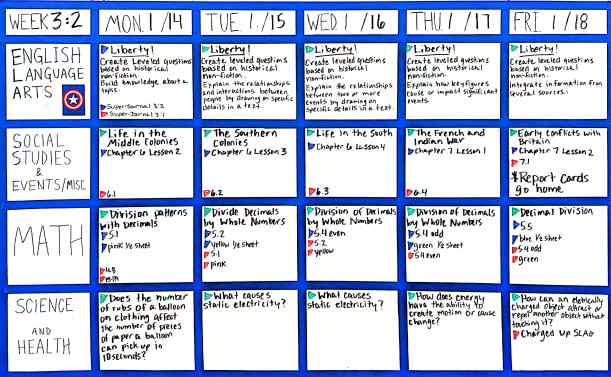 WEEK 3:2
MON. 1/14
TUE 1/15
WED 1/16
THU 1/17
FRI 1/18
ENGLISH
LANGUAGE
ARTS
Liberty!
Create leveled questions
based on historical
non-fiction.
Build knowledge about a
topic.
SuperJournal 3:2
SuperJournal 3:1
Liberty!
Create leveled questions
based on historical
non-fiction.
Explain the relationships
and interactions between
people by drawing on specific
details in a text.
Liberty!
Create leveled questions
based on historical
non-fiction.
Explain the relationships
between two or more
events by drawing on
specific details in a text.
Liberty!
Create leveled questions
based on historical
non-fiction.
Explain how key figures
cause or impact significant
events.
Liberty!
Create leveled questions
based on historical
non-fiction.
Integrate information from
several sources.
SOCIAL
STUDIES
&
EVENTS/MISC
Life in the
Middle Colonies
Chapter 6 Lesson 2
6.1
The Southern
Colonies
Chapter 6 Lesson 3
6.2
Life in the South
Chapter 6 Lesson 4
6.3
The French and
Indian War
Chapter 7 Lesson 1
6.4
Early Conflicts with
Britain
Chapter 7 Lesson 2
7.1
Report Cards
go home
MATH
Division patterns
with decimals
5.1
pink 1/2 sheet
Divide Decimals
by Whole Numbers
5.2
yellow 1/2 sheet
5.1
pink
Division of Decimals
by Whole Numbers
5.4 even
5.2
yellow
Division of Decimals
by Whole Numbers
5.4 odd
green 1/2 sheet
5.4 even
Decimal Division
5.5
blue 1/2 sheet
5.4 odd
green
SCIENCE
AND
HEALTH
Does the number
of rubs of a balloon
on clothing affect
the number of pieces
of paper a balloon
can pick up in
10 seconds?
What causes
static electricity?
What causes
static electricity?
How does energy
have the ability to
create motion or cause
change?
How can an eletrically
charged object attract or
repel another object without
touching it?
Charged Up SLAG